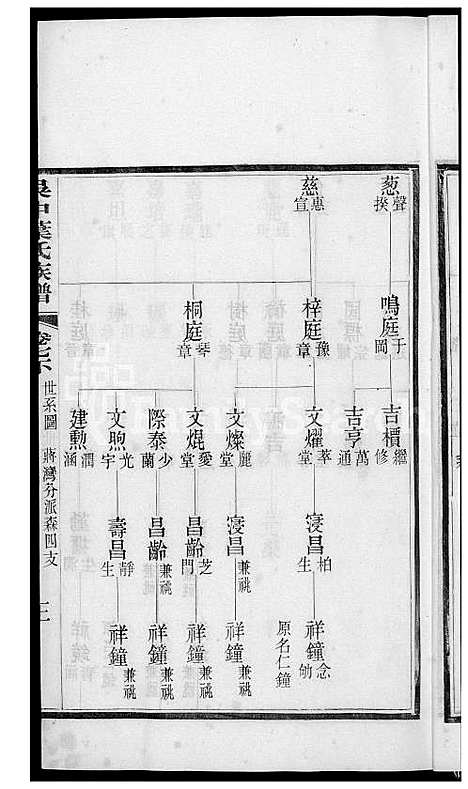 葱 聲揆
鳴庭 于岡
吉櫝 繼修
吉亨 萬通
慈 惠宣
梓庭 豫章
文燿 萃堂
寖昌 柏生
祥鐘 念劬
原名仁鐘
文燦 麗堂
寖昌 兼祧
祥鐘 兼祧
桐庭 琴章
文焜 愛堂
昌齡 芝門
祥鐘 兼祧
際泰 少蘭
昌齡 兼祧
祥鐘 兼祧
文煦 光宇
壽昌 靜生
祥鐘 兼祧
建勲 潤涵
吳中葉氏族譜
卷七下
世系圖 蔣灣分派森四支